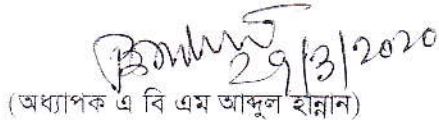 29/3/2020
(অধ্যাপক এ বি এম আব্দুল হান্নান)